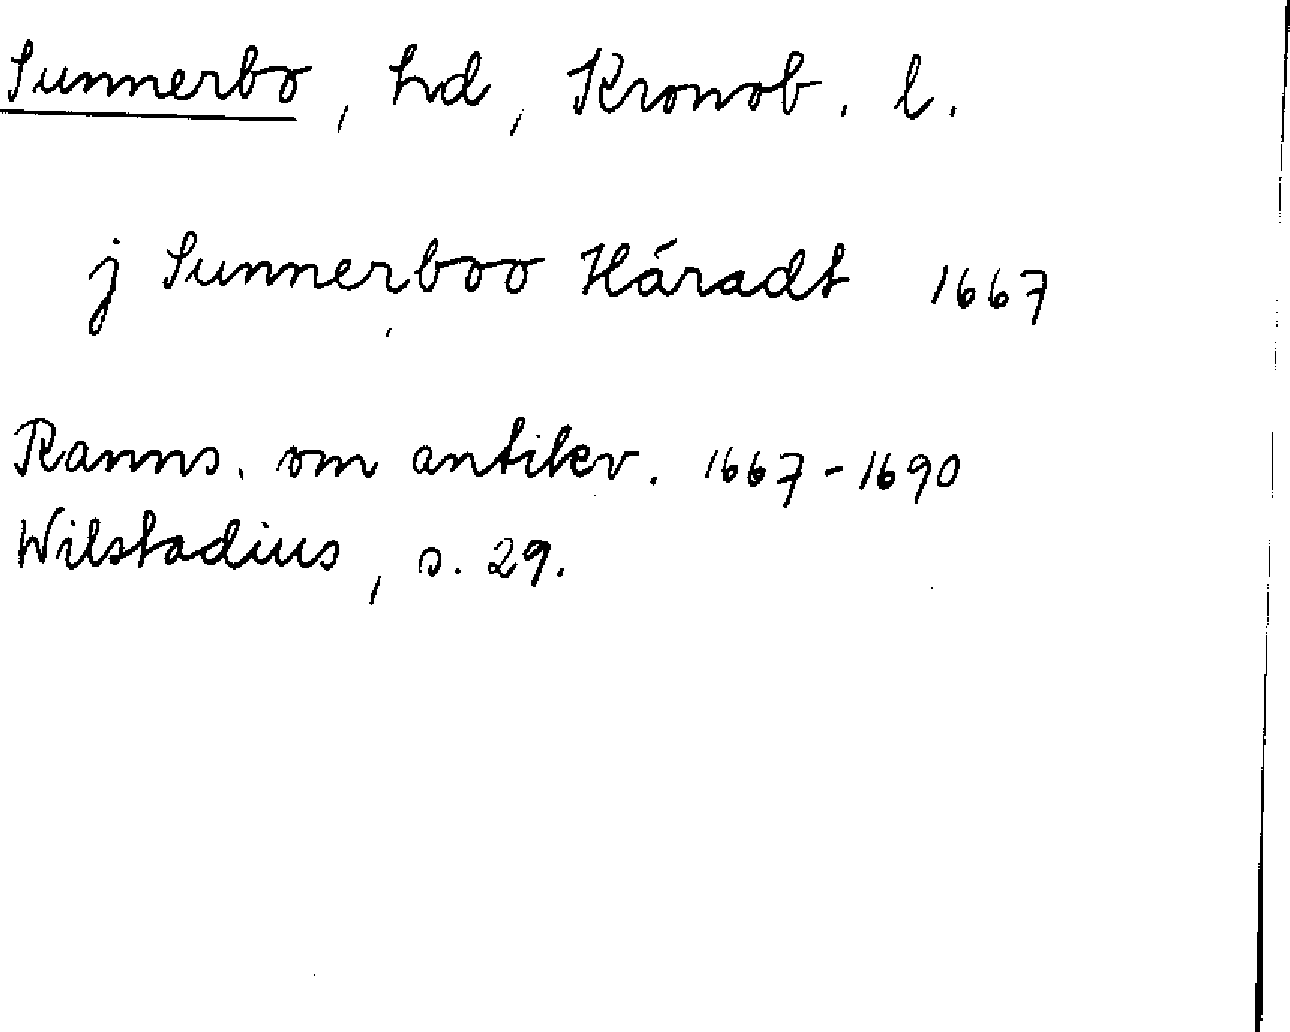 Sunnerbo, hd, Kronob. l.
j Sunnerboo Háradt 1667
Ranns. om antikv. 1667-1690
Wilstadius, s. 29.